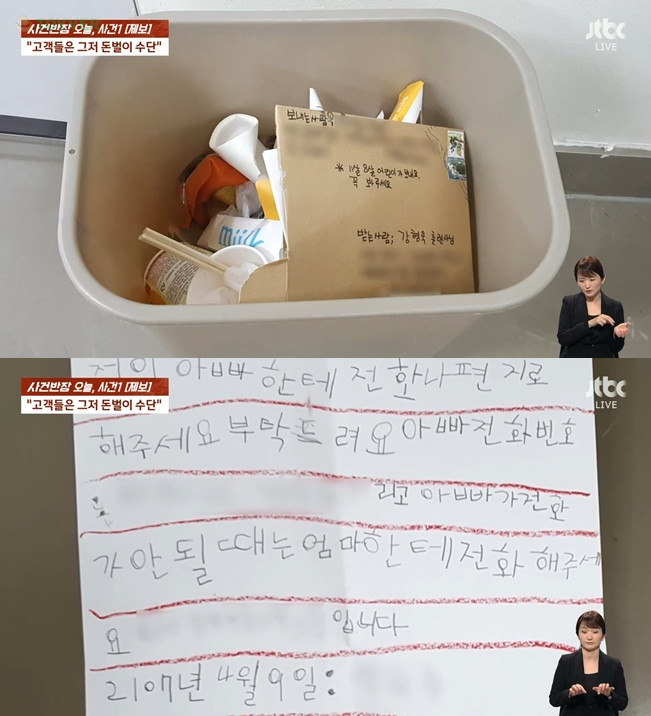 사건반장 오늘, 사건1 [제보]
"고객들은 그저 돈벌이 수단"
jtbc
LIVE
보내는사람
* 11살 8살 어린이가 보내요.
꼭 봐주세요
받는사람; 강형욱 훈련사님
milk
사건반장 오늘, 사건1 [제보]
"고객들은 그저 돈벌이 수단"
jtbc
LIVE
저희 아빠한테 전화나편지로
해주세요 부탁드려요 아빠전화번호
는
리고 아빠가전화
가 안될때는엄마한테전화해주세
요
입니다
2107년 4월 9일: